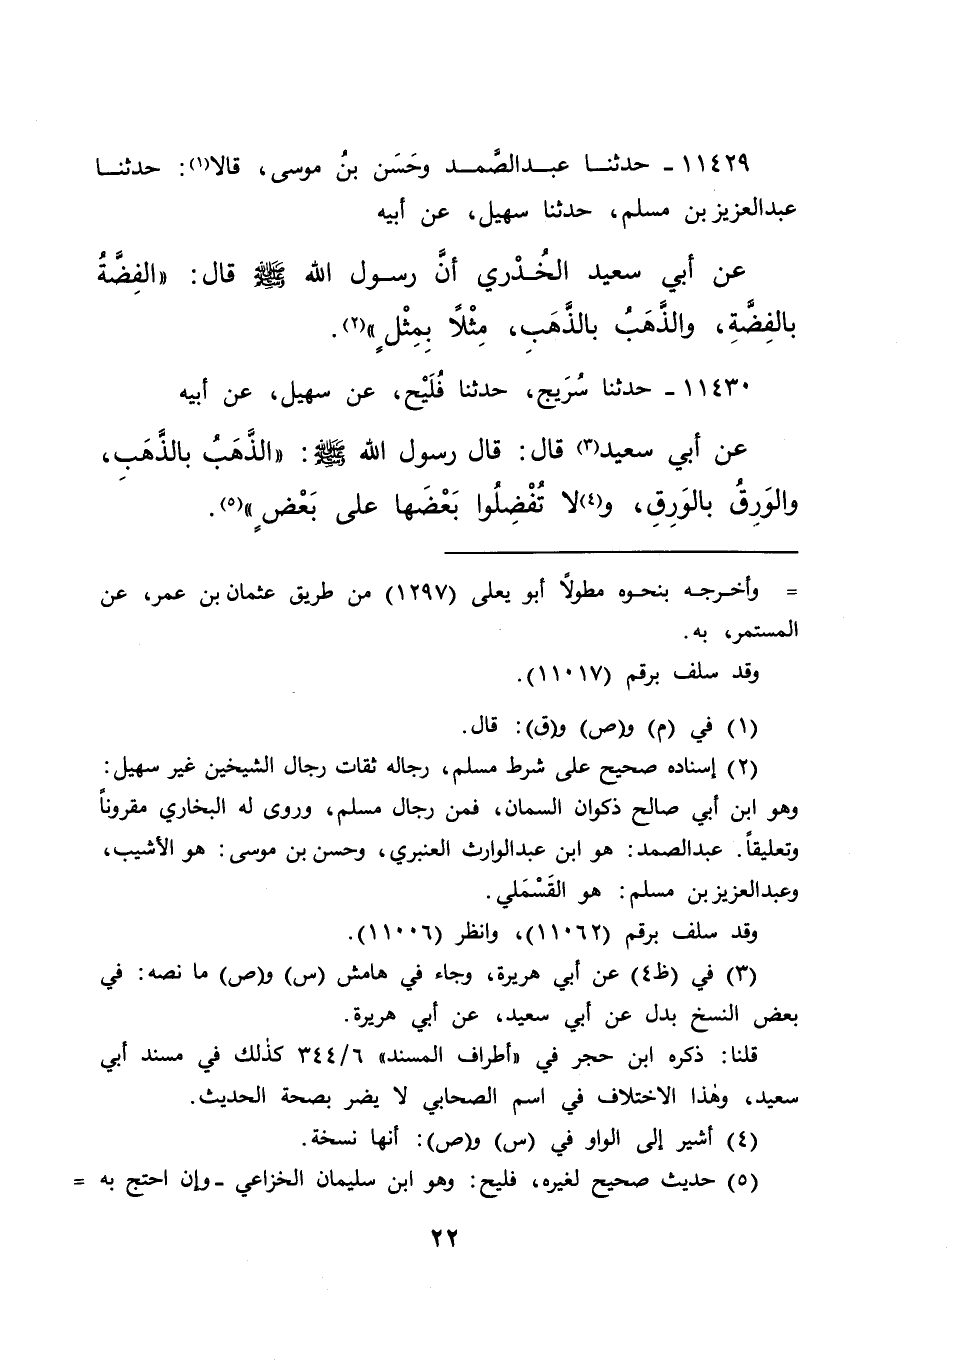 ١١٤٢٩ ـ حدثنـا عبـدالصَّمـد وحَسَن بنُ موسى، قالا(١): حدثنـا
عبدالعزيز بن مسلم، حدثنا سهيل، عن أبيه
عن أبي سعيد الخُدْري أنَّ رسول الله ﷺ قال: «الفِضَّةُ
بالفِضَّةِ، والذَّهَبُ بالذَّهَبِ، مِثْلًا بِمِثْلٍ»(٢).
١١٤٣٠ ـ حدثنا سُرَيج، حدثنا فُلَيْح، عن سهيل، عن أبيه
عن أبي سعيد(٣) قال: قال رسول الله ﷺ: «الذَّهَبُ بالذَّهَبِ،
والوَرِقُ بالوَرِقِ، و(٤)لا تُفْضِلُوا بَعْضَها على بَعْضٍ»(٥).
= وأخرجه بنحوه مطولًا أبو يعلى (١٢٩٧) من طريق عثمان بن عمر، عن
المستمر، به.
وقد سلف برقم (١١٠١٧).
(١) في (م) و(ص) و(ق): قال.
(٢) إسناده صحيح على شرط مسلم، رجاله ثقات رجال الشيخين غير سهيل:
وهو ابن أبي صالح ذكوان السمان، فمن رجال مسلم، وروى له البخاري مقروناً
وتعليقاً. عبدالصمد: هو ابن عبدالوارث العنبري، وحسن بن موسى: هو الأشيب،
وعبدالعزيز بن مسلم: هو القَسْمَلي.
وقد سلف برقم (١١٠٦٢)، وانظر (١١٠٠٦).
(٣) في (ظ٤) عن أبي هريرة، وجاء في هامش (س) و(ص) ما نصه: في
بعض النسخ بدل عن أبي سعيد، عن أبي هريرة.
قلنا: ذكره ابن حجر في «أطراف المسند» ٣٤٤/٦ كذٰلك في مسند أبي
سعيد، وهٰذا الاختلاف في اسم الصحابي لا يضر بصحة الحديث.
(٤) أشير إلى الواو في (س) و(ص): أنها نسخة.
(٥) حديث صحيح لغيره، فليح: وهو ابن سليمان الخزاعي ـ وإن احتج به =
٢٢